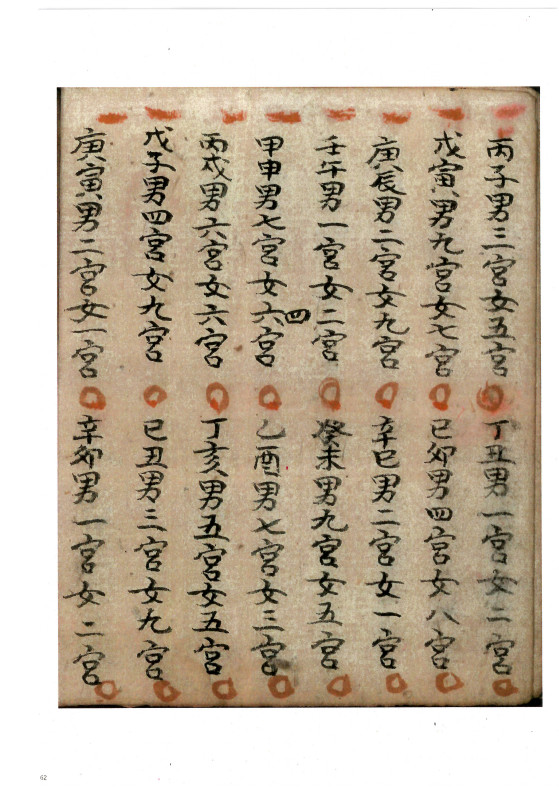 丙子男三宮女五宮 丁丑男一宮女二宮
戊寅男九宮女七宮 己卯男四宮女八宮
庚辰男二宮女九宮 辛巳男二宮女一宮
壬午男一宮女二宮 癸未男九宮女五宮
四
甲申男七宮女六宮 乙酉男七宮女三宮
丙戌男六宮女六宮 丁亥男五宮女五宮
戊子男四宮女九宮 己丑男三宮女九宮
庚寅男二宮女一宮 辛卯男一宮女二宮
62